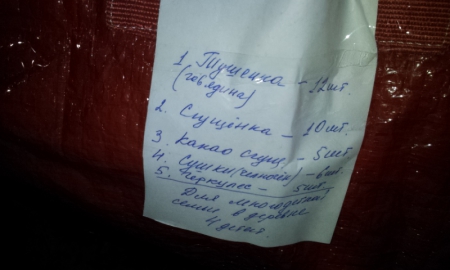 1. Тушенка - 12 шт.
(говядина)
2. Сгущёнка - 10 шт.
3. Какао сгущ. - 5 шт
4. Сушки - 6 шт.
5. Геркулес - 5 шт
Для многодетной
семьи в деревне
4 детей